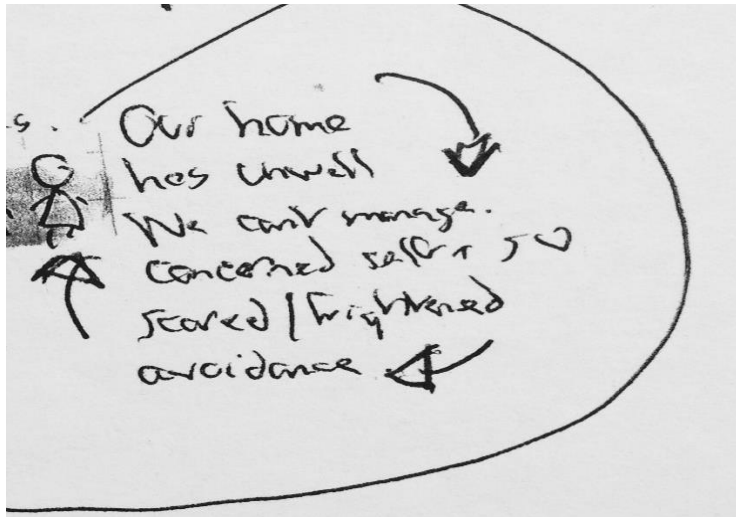 s.
Our home
hes unwell
We can't manage.
concerned self +
scared / frightened
avoidance